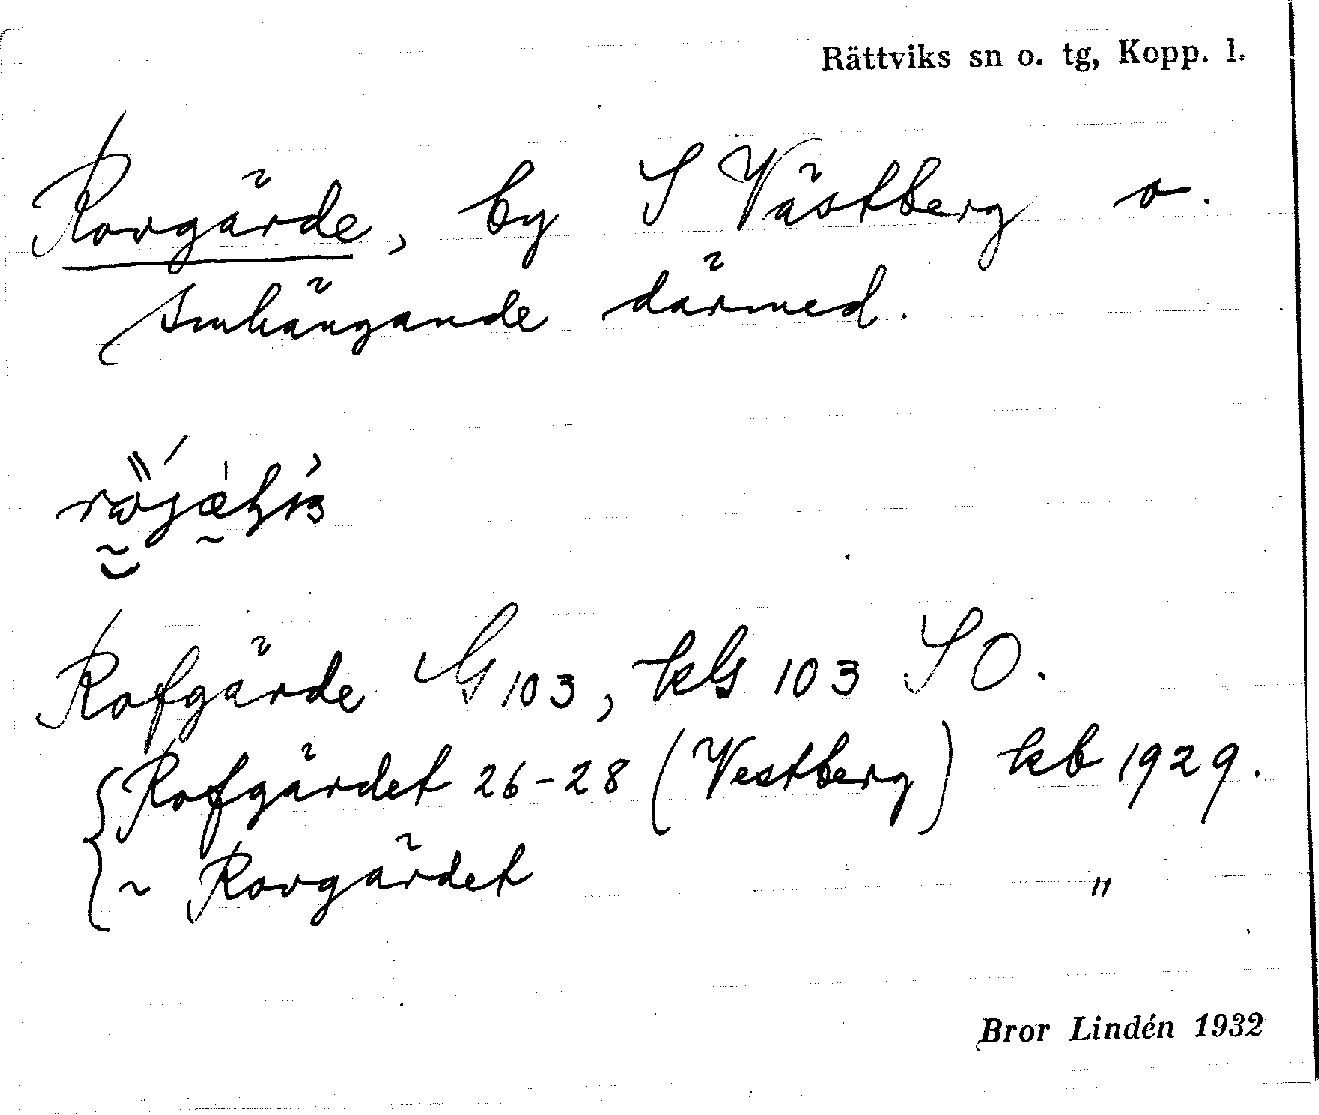 Rättviks sn o. tg, Kopp. l.
Rovgärde, by S Västberg o.
smhängande därmed.
Rofgärde G 103, kls 103 SO.
Rofgärdet 26-28 (Vestberg) kb 1929.
~ Rovgärdet "
Bror Lindén 1932